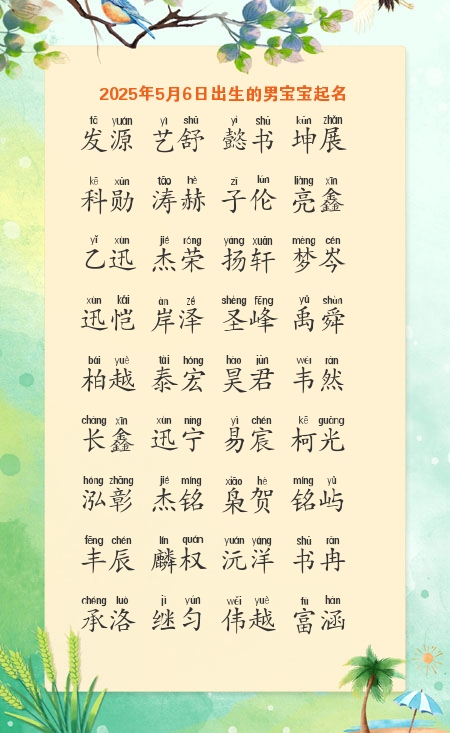 2025年5月6日出生的男宝宝起名
fā yuán yì shū yì shū kūn zhǎn
发源 艺舒 懿书 坤展
kē xūn tāo hè zǐ lún liàng xīn
科勋 涛赫 子伦 亮鑫
yǐ xùn jié róng yáng xuān mèng cén
乙迅 杰荣 扬轩 梦岑
xùn kǎi àn zé shèng fēng yǔ shùn
迅恺 岸泽 圣峰 禹舜
bǎi yuè tài hóng hào jūn wéi rán
柏越 泰宏 昊君 韦然
cháng xīn xùn níng yì chén kē guāng
长鑫 迅宁 易宸 柯光
hóng zhāng jié míng xiāo hè míng yǔ
泓彰 杰铭 枭贺 铭屿
fēng chén lín quán yuán yáng shū rǎn
丰辰 麟权 沅洋 书冉
chéng luò jì yún wěi yuè fù hán
承洛 继匀 伟越 富涵